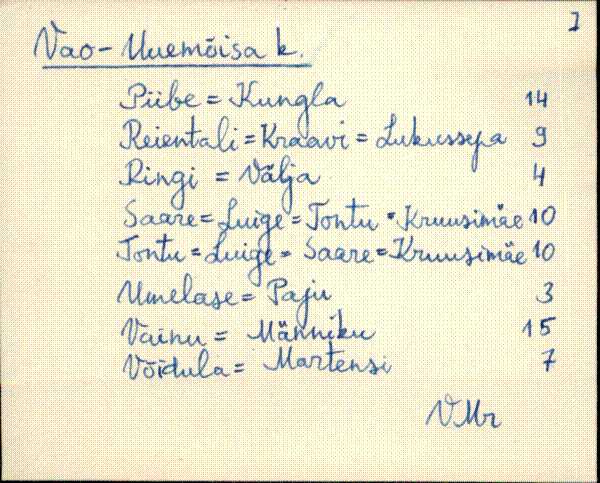 J
Vao-Uuemõisa k.
Piibe = Kungla 14
Reientali = Kraavi = Lukussepa 9
Ringi = Välja 4
Saare = Luige = Tontu = Kruusimäe 10
Tontu = Luige = Saare = Kruusimäe 10
Umelase = Paju 3
Vainu = Männiku 15
Võidula = Martensi 7
VMr